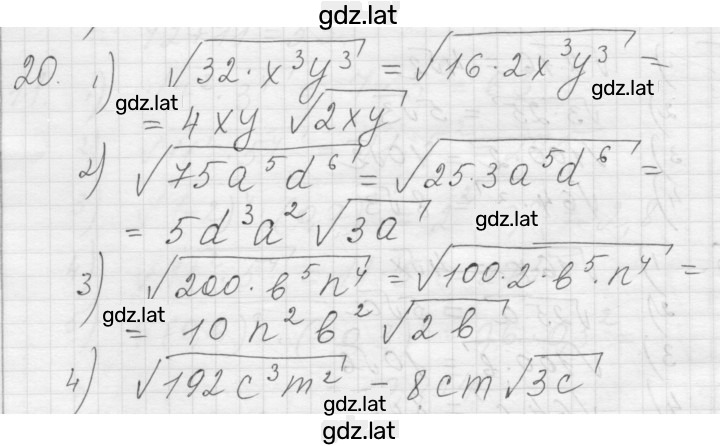 gdz.lat
20. 1) √32·x³y³ = √16·2x³y³ =
gdz.lat
gdz.lat
= 4xy √2xy
2) √75a⁵d⁶ = √25·3a⁵d⁶ =
= 5d³a² √3a
gdz.lat
3) √200·в⁵n⁴ = √100·2·в⁵·n⁴ =
gdz.lat
= 10 n² в² √2в
4) √192c³m² - 8cm√3c
gdz.lat
gdz.lat